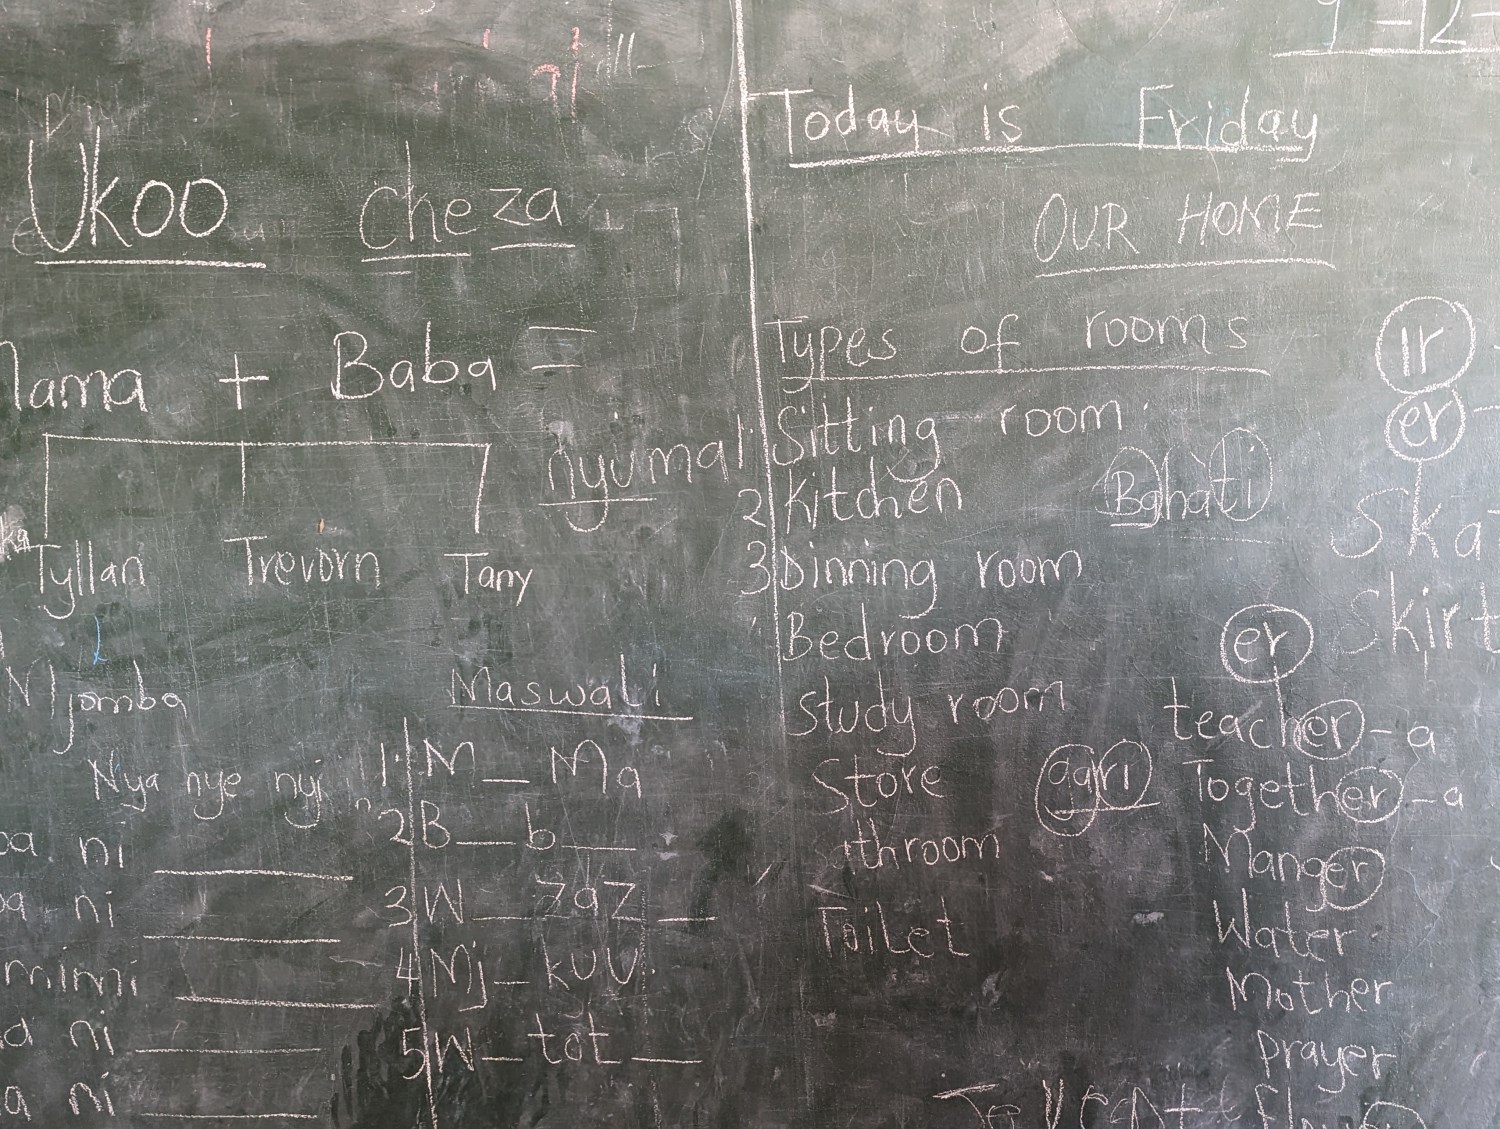 Ukoo cheza
Mama + Baba =
nyuma
Tyllan Trevorn Tany
Mjomba
Nya nye nyi
ni ___
ni ___
ni ___
ni ___
Maswali
1. M_Ma
2 B_b_
3 W_zaz_
4 Mj_kuu
5 W_tot_
9-12-
Today is Friday
OUR HOME
Types of rooms
1. Sitting room
2 Kitchen
3 Dinning room
Bedroom
Study room
Store
athroom
Toilet
Bghati
agri
ir
er
Ska
Skirt
er
teacher-a
Together-a
Manger
Water
Mother
prayer